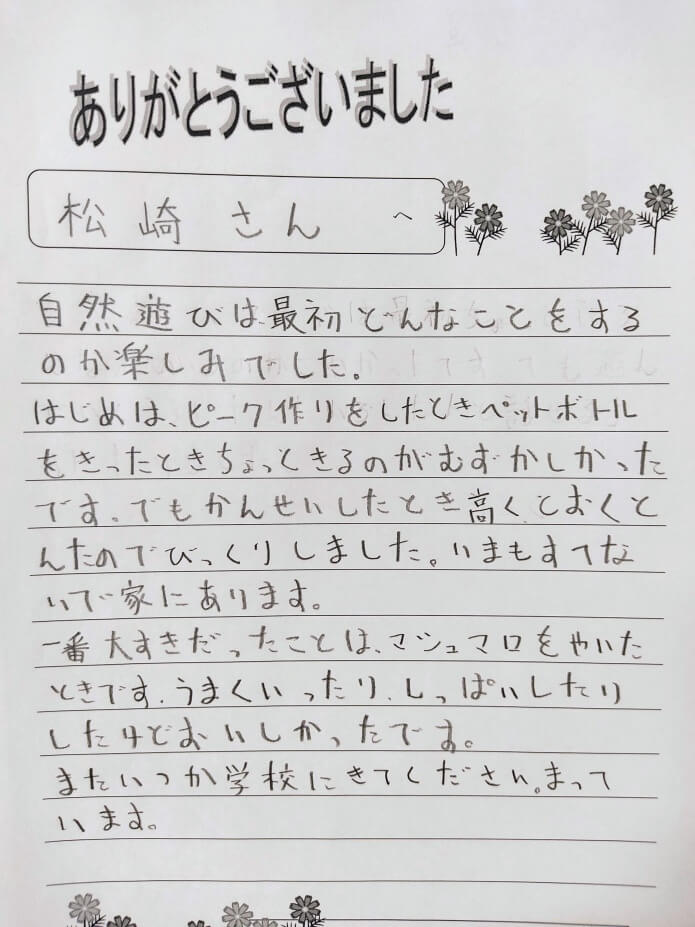 ありがとうございました
松崎 さん へ
自然遊びは最初どんなことをする
のか楽しみでした。
はじめは、ピーク作りをしたときペットボトル
をきったときちょっときるのがむずかしかった
です。でもかんせいしたとき高くとおくと
んだのでびっくりしました。いまもすてな
いで家にあります。
一番大すきだったことは、マシュマロをやいた
ときです。うまくいったり、しっぱいしたり
したけどおいしかったです。
またいつか学校にきてください。まって
います。